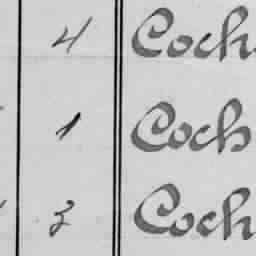 4 Coch
1 Coch
3 Coch